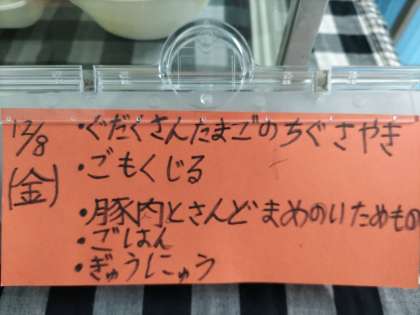 12/8
(金)
・ぐだくさんたまごのちぐさやき
・ごもくじる
・豚肉とさんどまめのいためもの
・ごはん
・ぎゅうにゅう